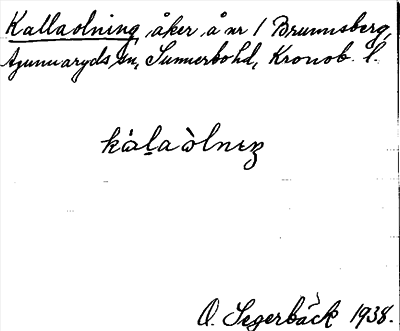 Kallaolning, åker å nr 1 Brunnsberg,
Agunnaryds sn, Sunnerbo hd, Kronob. l.
kàlaòlnıŋ
O. Segerbäck 1938.